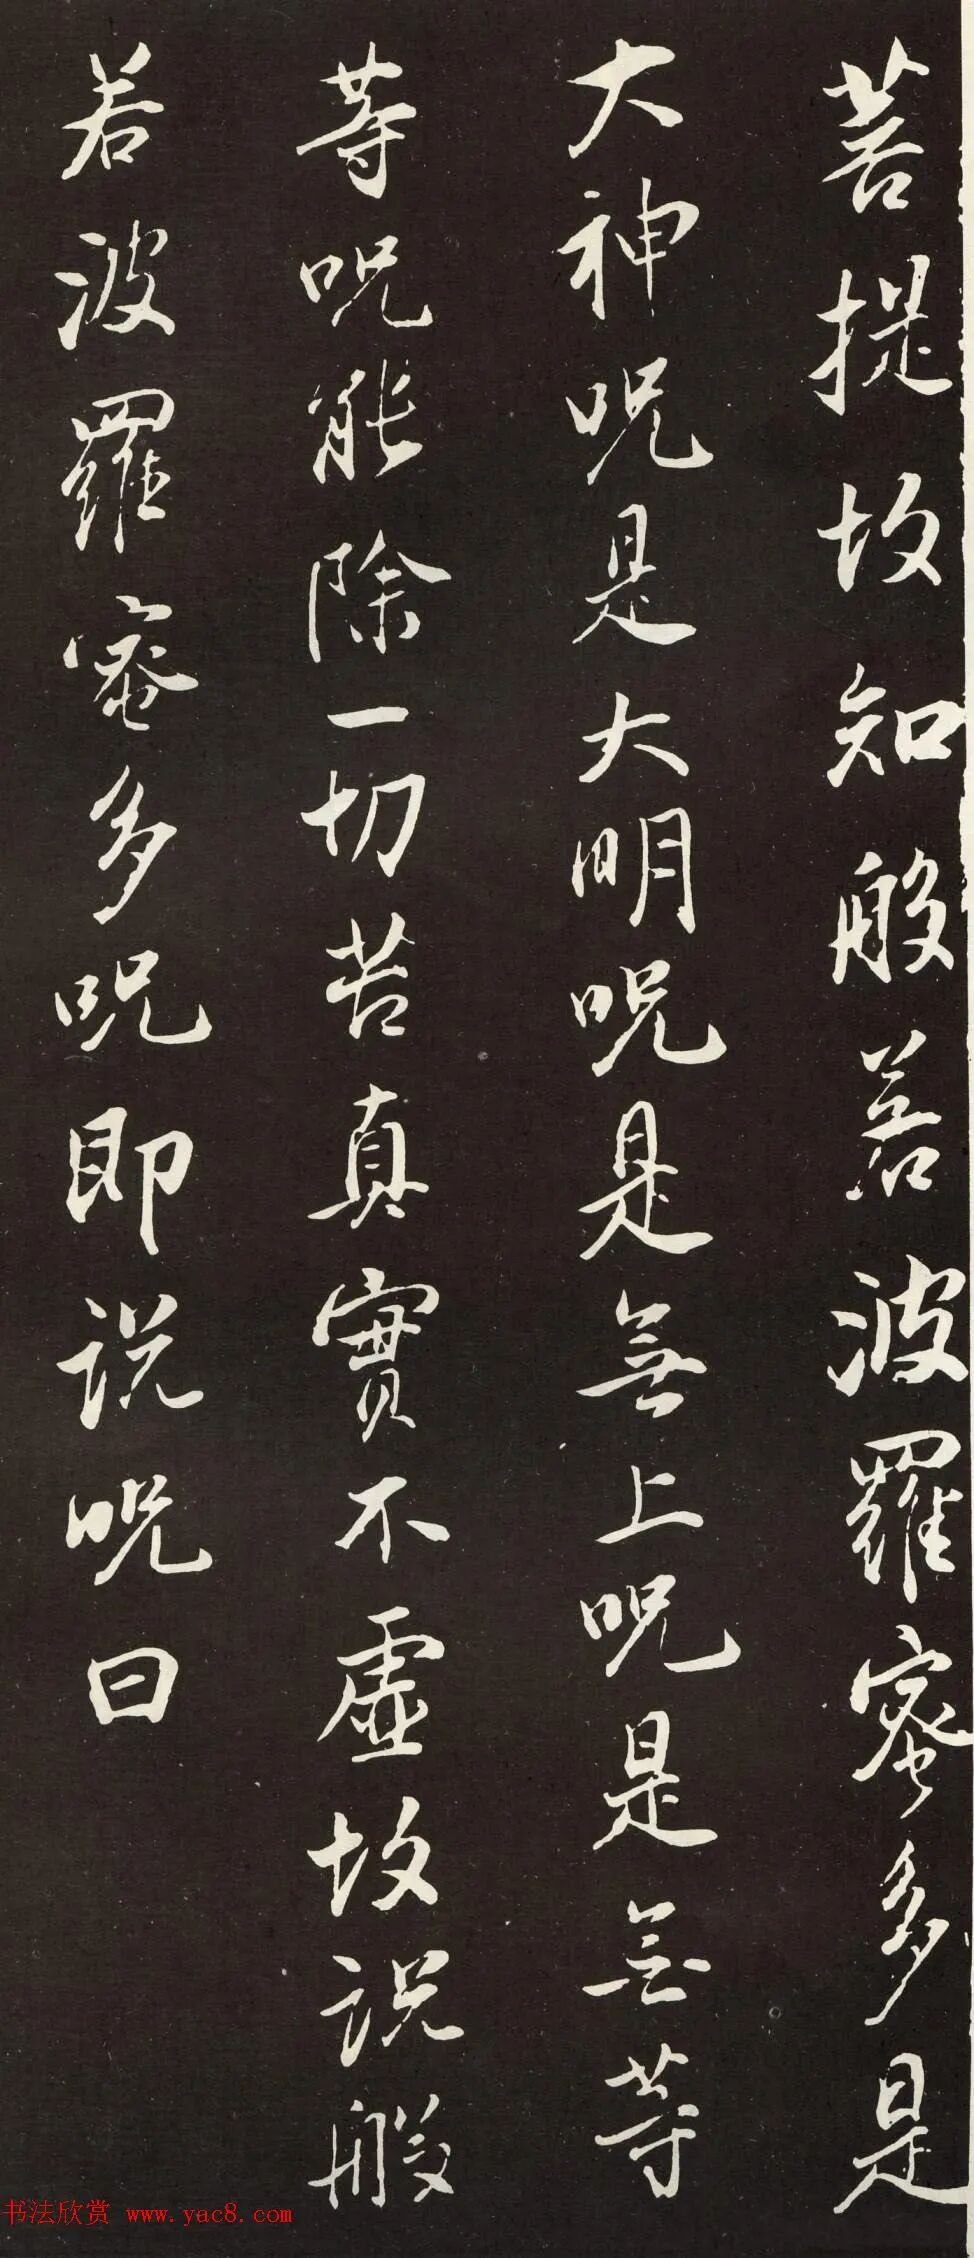 菩提故知般若波羅蜜多是
大神呪是大明呪是無上呪是無等
等呪能除一切苦真實不虛故説般
若波羅蜜多呪即説呪曰
书法欣赏 www.yac8.com